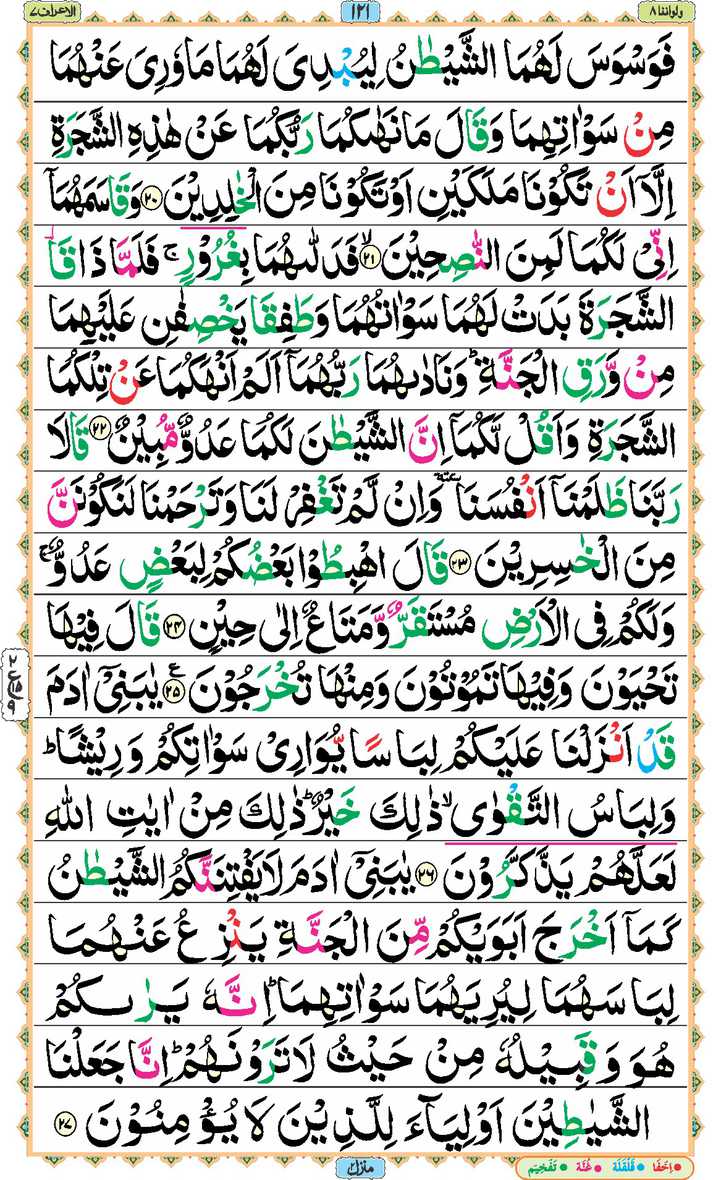 الاعراف٧ ١٢١ ولواننا٨
فَوَسْوَسَ لَهُمَا الشَّيْطٰنُ لِيُبْدِىَ لَهُمَا مَا وٗرِىَ عَنْهُمَا
مِنْ سَوْاٰتِهِمَا وَقَالَ مَا نَهٰىكُمَا رَبُّكُمَا عَنْ هٰذِهِ الشَّجَرَةِ
اِلَّاۤ اَنْ تَكُوْنَا مَلَكَيْنِ اَوْ تَكُوْنَا مِنَ الْخٰلِدِيْنَ ٢٠ وَقَاسَمَهُمَاۤ
اِنِّىْ لَكُمَا لَمِنَ النّٰصِحِيْنَ ۙ٢١ فَدَلّٰىهُمَا بِغُرُوْرٍ ۚ فَلَمَّا ذَاقَا
الشَّجَرَةَ بَدَتْ لَهُمَا سَوْاٰتُهُمَا وَطَفِقَا يَخْصِفٰنِ عَلَيْهِمَا
مِنْ وَّرَقِ الْجَنَّةِ ؕ وَنَادٰىهُمَا رَبُّهُمَاۤ اَلَمْ اَنْهَكُمَا عَنْ تِلْكُمَا
الشَّجَرَةِ وَاَقُلْ لَّكُمَاۤ اِنَّ الشَّيْطٰنَ لَكُمَا عَدُوٌّ مُّبِيْنٌ ٢٢ قَالَا
رَبَّنَا ظَلَمْنَاۤ اَنْفُسَنَا ٚ وَاِنْ لَّمْ تَغْفِرْ لَنَا وَتَرْحَمْنَا لَنَكُوْنَنَّ
مِنَ الْخٰسِرِيْنَ ٢٣ قَالَ اهْبِطُوْا بَعْضُكُمْ لِبَعْضٍ عَدُوٌّ ۚ
وَلَكُمْ فِى الْاَرْضِ مُسْتَقَرٌّ وَّمَتَاعٌ اِلٰى حِيْنٍ ٢٤ قَالَ فِيْهَا
تَحْيَوْنَ وَفِيْهَا تَمُوْتُوْنَ وَمِنْهَا تُخْرَجُوْنَ ٢٥ ع يٰبَنِىْۤ اٰدَمَ
قَدْ اَنْزَلْنَا عَلَيْكُمْ لِبَاسًا يُّوَارِىْ سَوْاٰتِكُمْ وَرِيْشًا ؕ
وَلِبَاسُ التَّقْوٰى ۙ ذٰلِكَ خَيْرٌ ؕ ذٰلِكَ مِنْ اٰيٰتِ اللّٰهِ
لَعَلَّهُمْ يَذَّكَّرُوْنَ ٢٦ يٰبَنِىْۤ اٰدَمَ لَا يَفْتِنَنَّكُمُ الشَّيْطٰنُ
كَمَاۤ اَخْرَجَ اَبَوَيْكُمْ مِّنَ الْجَنَّةِ يَنْزِعُ عَنْهُمَا
لِبَاسَهُمَا لِيُرِيَهُمَا سَوْاٰتِهِمَا ؕ اِنَّهٗ يَرٰىكُمْ
هُوَ وَقَبِيْلُهٗ مِنْ حَيْثُ لَا تَرَوْنَهُمْ ؕ اِنَّا جَعَلْنَا
الشَّيٰطِيْنَ اَوْلِيَآءَ لِلَّذِيْنَ لَا يُؤْمِنُوْنَ ٢٧
منزل٢
اِخفَا قَلْقَلَة غُنَّه تَفْخِيْم